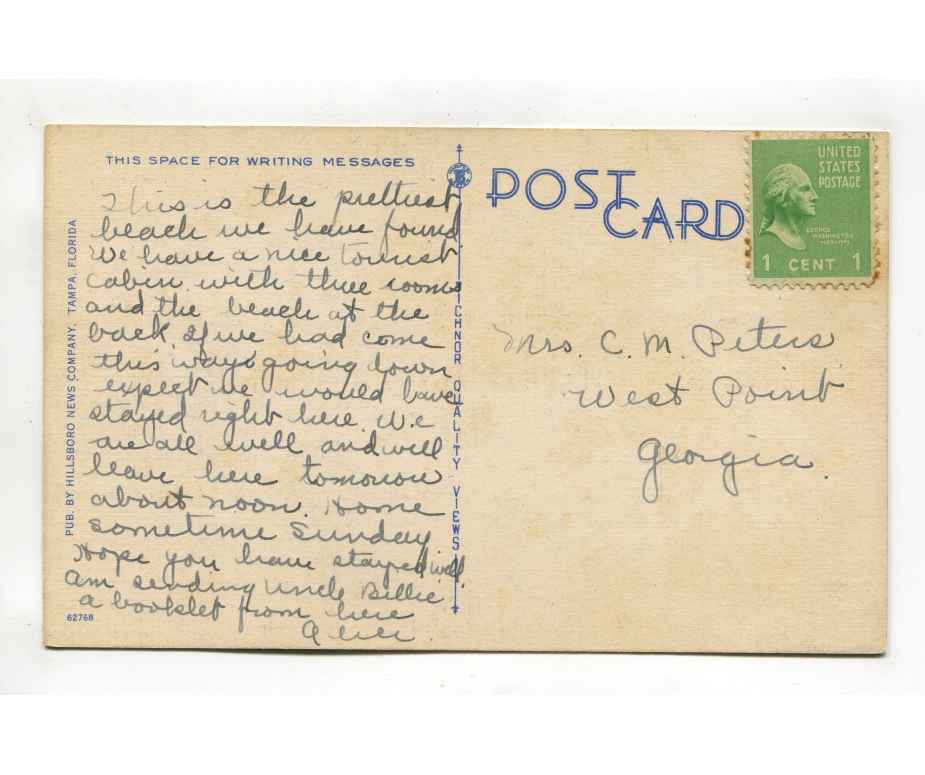 THIS SPACE FOR WRITING MESSAGES
This is the prettiest
beach we have found
We have a nice tourist
cabin with three rooms
and the beach at the
back. If we had come
this way going down
expect we would have
stayed right here. We
are all well and will
leave here tomorrow
about noon. Home
sometime Sunday
Hope you have stayed well.
Am sending Uncle Billie
a booklet from here
PUB. BY HILLSBORO NEWS COMPANY, TAMPA, FLORIDA
62768
ICHNOR QUALITY VIEWS
POST
CARD
UNITED
STATES
POSTAGE
GEORGE
WASHINGTON
1 CENT 1
Mrs. C. M. Peters
West Point
Georgia